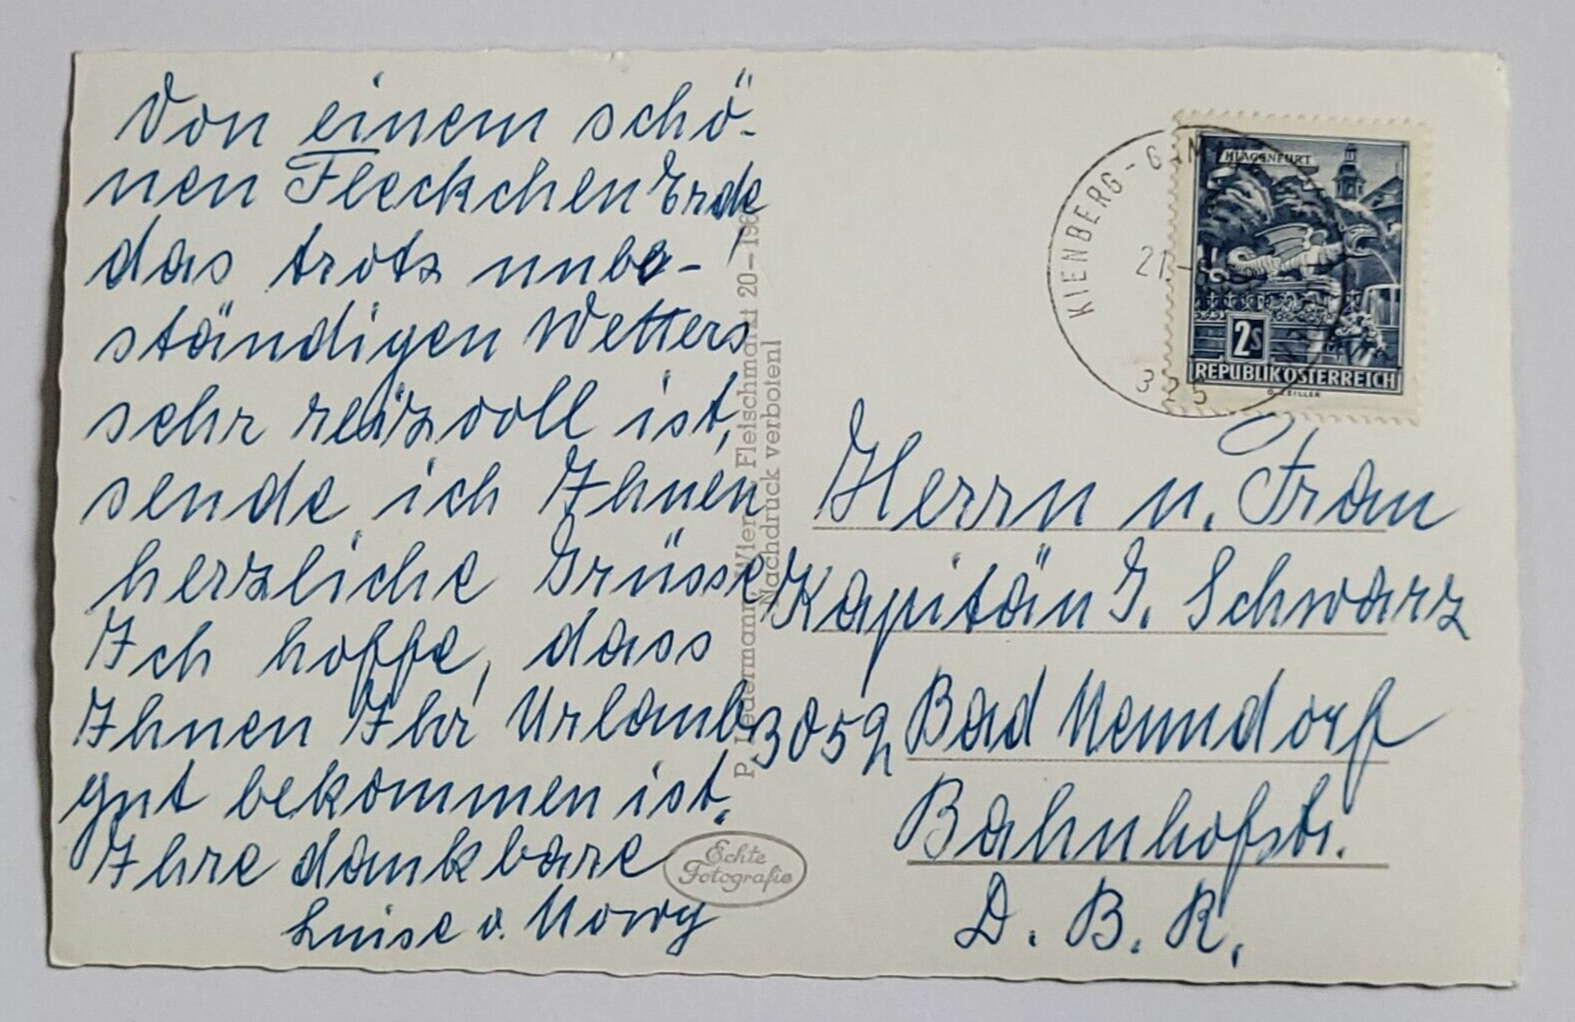 Von einem schö-
nen Fleckchen Erde
das trotz unbe-
ständigen Wetters
sehr reizvoll ist,
sende ich Ihnen
herzliche Grüsse,
Ich hoffe, dass
Ihnen Ihr Urlaub
gut bekommen ist.
Ihre dankbare
Luise v.
P. Ledermann, Wien, Fleischmarkt 20-
Nachdruck verboten!
Echte
Fotografie
KIENBERG-
21
325
KLAGENFURT
2s
REPUBLIK ÖSTERREICH
Herrn u. Frau
Kapitän J. Schwarz
3052 Bad Nenndorf
Bahnhofstr.
D. B. R.